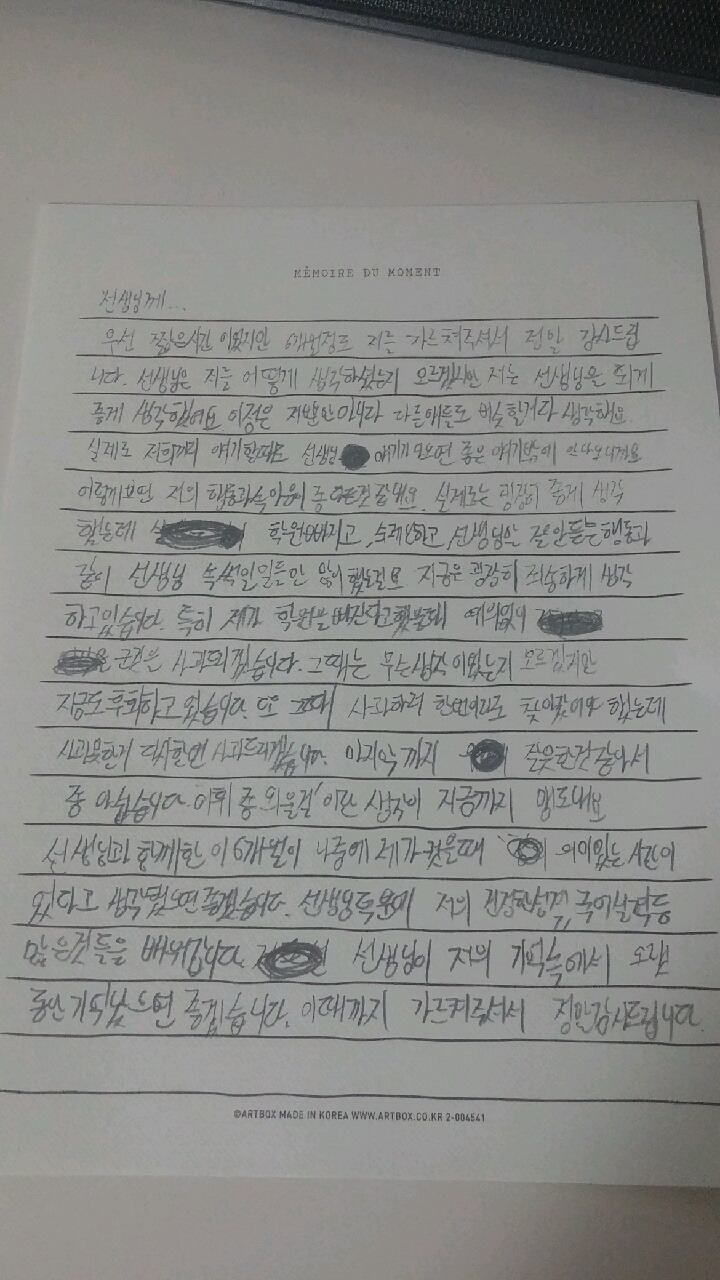 MÉMOIRE DU MOMENT
선생님께...
우선 짧은시간 이였지만 6개월정도 저를 가르쳐주셔서 정말 감사드립
니다. 선생님은 저를 어떻게 생각하셨는지 모르겠지만 저는 선생님을 되게
좋게 생각했어요 이점은 저뿐만 아니라 다른애들도 비슷할거라 생각해요
실제로 저희끼리 얘기할때도 선생님 얘기가 나오면 좋은 얘기밖에 안나오니까요
어떻게보면 저의 행동과속마음이 좀 다른것 같네요. 실제로는 굉장히 좋게 생각
했는데 학원빠지고, 숙제안하고, 선생님말 잘안듣는행동과
같이 선생님 속썩일일들만 많이했는걸요 지금은 굉장히 죄송하게 생각
하고있습니다. 특히 제가 학원을 빠진다고했을때 예의없이
군것은 사과드리겠습니다. 그때는 무슨생각이였는지 모르겠지만
지금도후회하고 있습니다. 또 사과하러 한번이라도 찾아갔어야 했는데
사과못한거 다시한번 사과드리겠습니다. 마지막 까지 잘못한것같아서
좀 아쉽습니다. 어휘 좀 외울걸'이란 생각이 지금까지 맴도네요
선생님과 함께한 이 6개월이 나중에 제가 컸을때 의미있는 시간이
있다고 생각됬으면좋겠습니다. 선생님덕분에 저의 진정한성격, 국어실력등
많은것들을 배워갑니다. 선생님이 저의 기억속에서 오랫
동안기억됬으면 좋겠습니다. 이때까지 가르켜주셔서 정말감사드립니다.
©ARTBOX MADE IN KOREA WWW.ARTBOX.CO.KR 2-004541